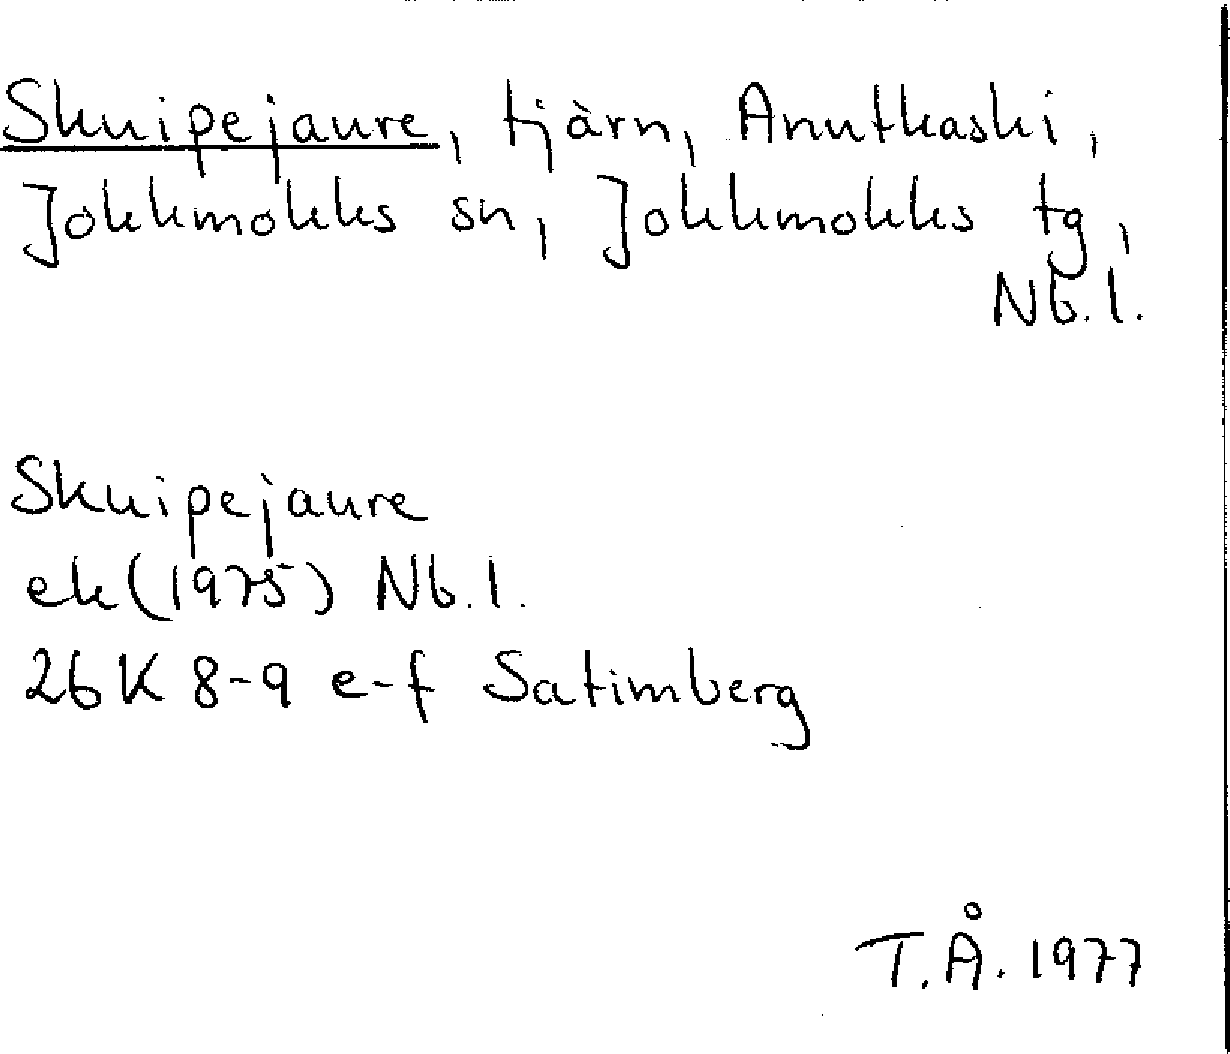 Skuipejaure, tjärn, Anutkaski,
Jokkmokks sn, Jokkmokks tg,
Nb.l.
Skuipejaure
ek (1975) Nb.l.
26K 8-9 e-f Satimberg
T.Å. 1977